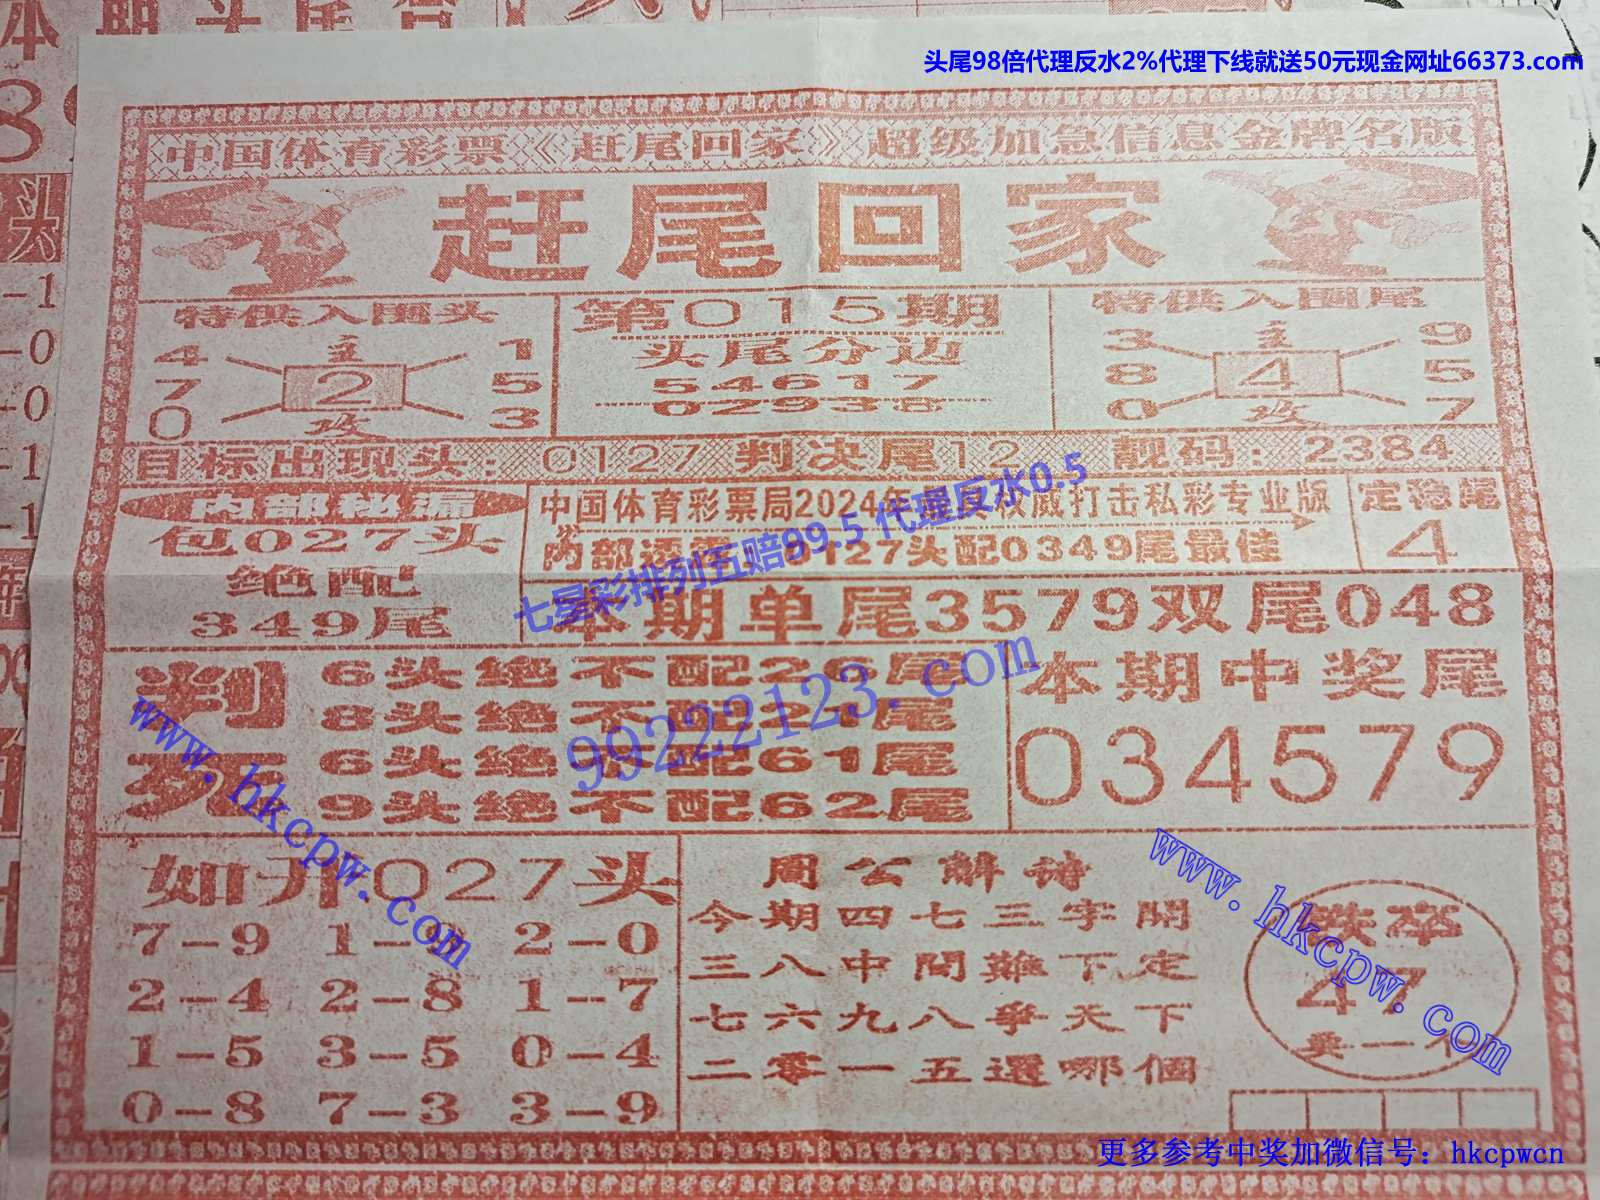 本期头尾合
头尾98倍代理反水2%代理下线就送50元现金网址66373.com
中国体育彩票《赶尾回家》超级加急信息金牌名版
赶尾回家
特供入围头
4 主 1
7 2 5
0 攻 3
第015期
头尾分边
54617
02938
特供入围尾
3 主 9
8 4 5
0 攻 7
目标出现头：0127 判决尾12 靓码：2384
内部秘漏
包027头
绝配
349尾
中国体育彩票局2024年 权威打击私彩专业版
内部透 0127头配0349尾最佳
定稳尾
4
七星彩排列五赔99.5 代理反水0.5
本期单尾3579双尾048
判死
6头绝不配26尾
8头绝不配21尾
6头绝不配61尾
9头绝不配62尾
99222123.com
本期中奖尾
034579
www.hkcpw.com
如开027头
7-9 1- 2-0
2-4 2-8 1-7
1-5 3-5 0-4
0-8 7-3 3-9
周公解诗
今期四七三字開
三八中間難下定
七六九八爭天下
二零一五選哪個
www.hkcpw.com
跌卒
47
要一个
更多参考中奖加微信号：hkcpwcn